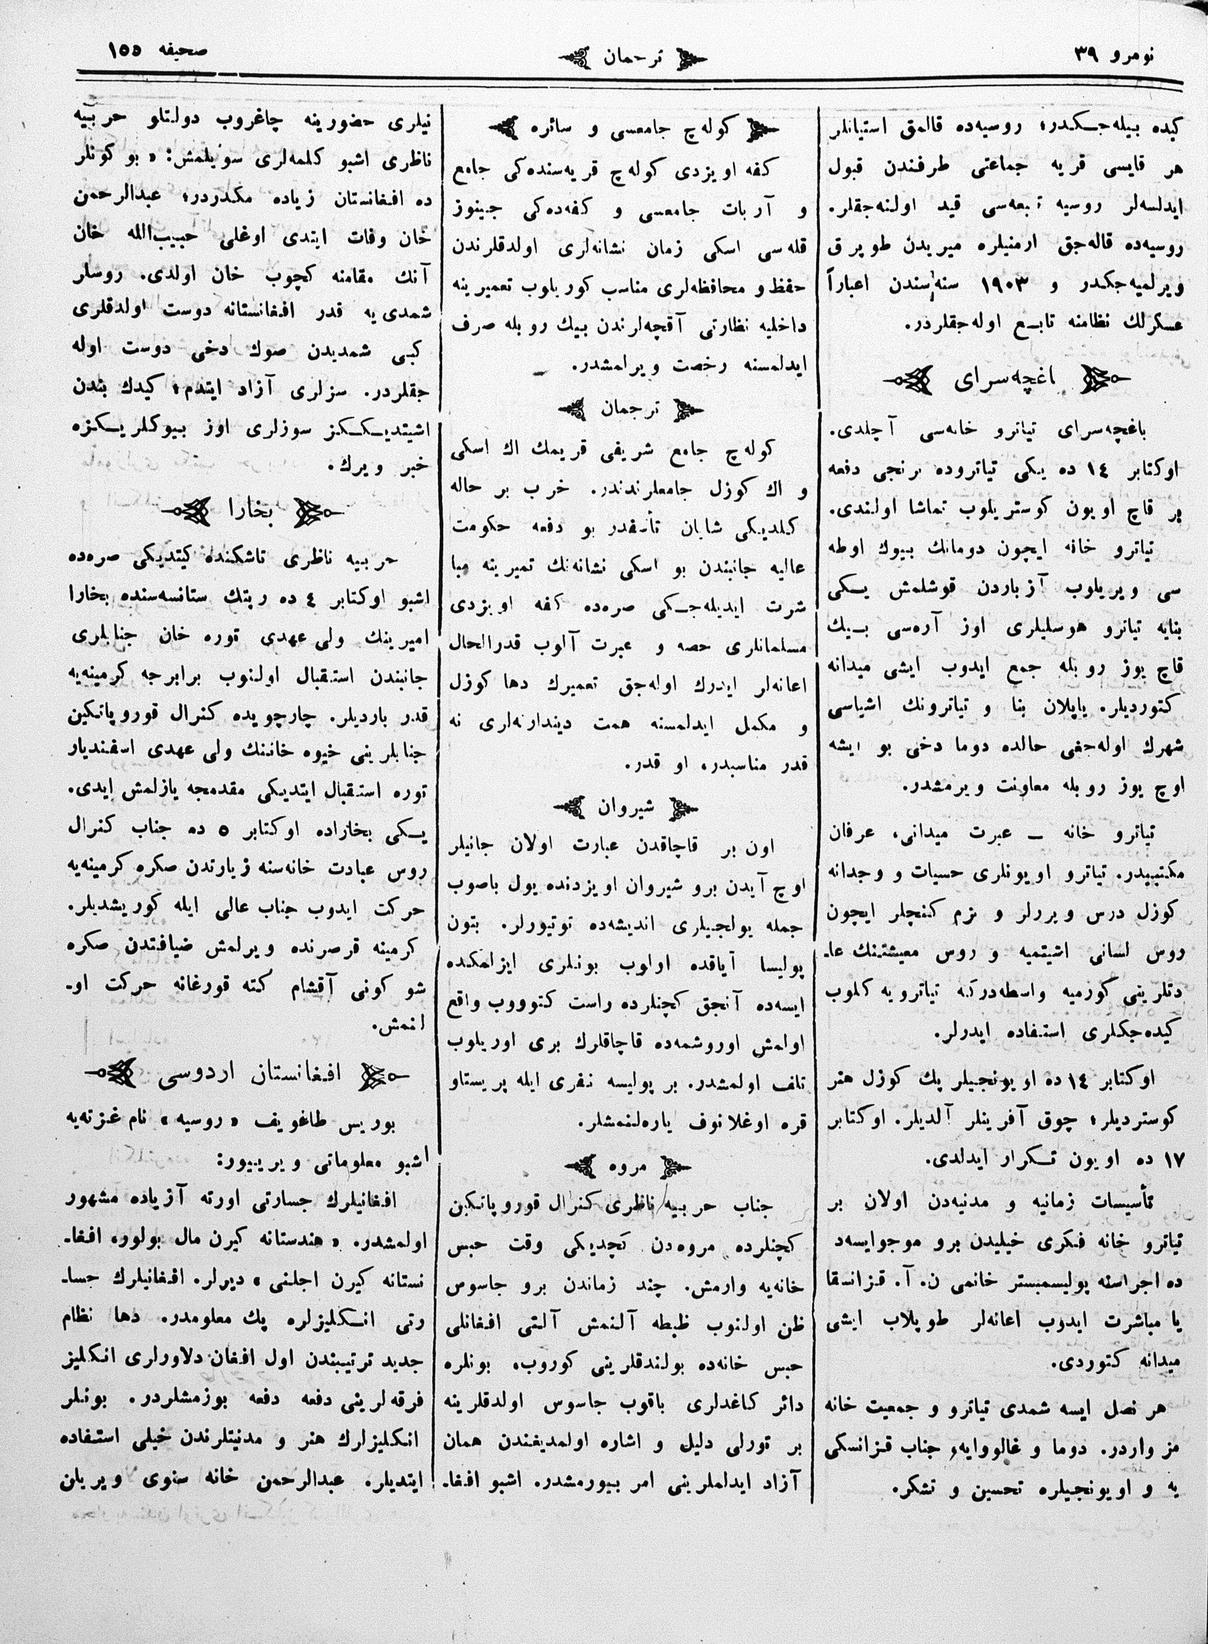 نومرو ٣٩
ترجمان
صحیفه ١٥٥
كیده بیله‌جكدر؛ روسیه‌ده قالمق استیانلر
هر قایسی قریه جماعتی طرفندن قبول
ایدلسه‌لر روسیه تبعه‌سی قید اولنه‌جقلر.
روسیه‌ده قاله‌جق ارمنیلره میریدن طوپرق
ویرلمیه‌جكدر و ١٩٠٣ سنه‌سندن اعباراً
عسكرلك نظامنه تابع اوله‌جقلردر.
باغچه‌سرای
باغچه‌سرای تیاترو خانه‌سی آچلدی.
اوكتابر ١٤ ده یكی تیاتروده برنجی دفعه
بر قاچ اویون كوستریلوب تماشا اولندی.
تیاترو خانه ایچون دومانك بیوك اوطه
سی ویریلوب آزباردن قوشلمش یكی
بنایه تیاترو هوسلیلری اوز آره‌سی بیك
قاچ یوز روبله جمع ایدوب ایشی میدانه
كتوردیلر. یاپلان بنا و تیاترونك اشیاسی
شهرك اوله‌جغی حالده دوما دخی بو ایشه
اوچ یوز روبله معاونت ویرمشدر.
تیاترو خانه ـ عبرت میدانی، عرفان
مكتبیدر. تیاترو اویونلری حسیات و وجدانه
كوزل درس ویررلر و بزم كنجلر ایچون
روس لسانی اشیتمیه و روس معیشتنك عاـ
دتلرینی كورمیه واسطه‌دركه تیاترویه كلوب
كیده‌جكلری استفاده ایدرلر.
اوكتابر ١٤ ده اویونجیلر پك كوزل هنر
كوستردیلر؛ چوق آفرینلر آلدیلر. اوكتابر
١٧ ده اویون تكرار ایدلدی.
تأسیسات زمانیه و مدنیه‌دن اولان بر
تیاترو خانه فكری خیلیدن برو موجوایسه‌د
ده اجراسنه پولیسمیستر خانمی ن. آ. قزانسقا
یا مباشرت ایدوب اعانه‌لر طوپلاب ایشی
میدانه كتوردی.
هر نصل ایسه شمدی تیاترو و جمعیت خانه
مز واردر. دوما و غالووایه و جناب قزانسكی
یه و اویونجیلره تحسین و تشكر.
كوله‌چ جامعسی و سائره
كفه اویزدی كوله‌چ قریه‌سنده‌كی جامع
و آربات جامعسی و كفه‌ده‌كی جینوز
قلعه‌سی اسكی زمان نشانه‌لری اولدقلرندن
حفظ و محافظه‌لری مناسب كوریلوب تعمیرینه
داخلیه نظارتی آقچه‌لرندن بیك روبله صرف
ایدلمسنه رخصت ویرلمشدر.
ترجمان
كوله‌چ جامع شریفی قریمك اك اسكی
و اك كوزل جامعلرندندر. خرب بر حاله
كلدیكی شایان تأسفدر بو دفعه حكومت
عالیه جانبندن بو اسكی نشانه‌نك تمیرینه مبا
شرت ایدیله‌جكی صره‌ده كفه اویزدی
مسلمانلری حصه و عبرت آلوب قدرالحال
اعانه‌لر ایدرك اوله‌جق تعمیرك دها كوزل
و مكمل ایدلمسنه همت دیندارنه‌لری نه
قدر مناسبدر، او قدر.
شیروان
اون بر قاچاقدن عبارت اولان جانیلر
اوچ آیدن برو شیروان اویزدنده یول باصوب
جمله یولجیلری اندیشه‌ده توتیورلر. بتون
پولیسا آیاقده اولوب بونلری ایزلمكده
ایسه‌ده آنجق كچنلرده راست كتوووب واقع
اولمش اوروشمه‌ده قاچاقلرك بری اوریلوب
تلف اولمشدر. بر پولیسه نفری ایله پریستاو
قره اوغلانوف یاره‌لنمشلر.
مروه
جناب حربیه ناظری كنرال قوروپاتكین
كچنلرده مروه‌دن كچدیكی وقت حبس
خانه‌یه وارمش. چند زماندن برو جاسوس
ظن اولنوب ظبطه آلنمش آلتی افغانلی
حبس خانه‌ده بولندقلرینی كوروب، بونلره
دائر كاغدلری باقوب جاسوس اولدقلرینه
بر تورلی دلیل و اشاره اولمدیغندن همان
آزاد ایدلملرینی امر بیورمشدر. اشبو افغاـ
نیلری حضورینه چاغروب دولتلو حربیه
ناظری اشبو كلمه‌لری سویلمش: « بو كونلر
ده افغانستان زیاده مكدردر؛ عبدالرحمن
خان وفات ایتدی اوغلی حبیب‌الله خان
آنك مقامنه كچوب خان اولدی. روسلر
شمدی‌یه قدر افغانستانه دوست اولدقلری
كبی شمدیدن صوك دخی دوست اوله
جقلردر. سزلری آزاد ایتدم؛ كیدك بندن
اشیتدیككز سوزلری اوز بیوكلریكزه
خبر ویرك.
بخارا
حربیه ناظری تاشكنده كیتدیكی صره‌ده
اشبو اوكتابر ٤ ده رپتك ستانسه‌سنده بخارا
امیرینك ولی عهدی توره خان جنابلری
جانبندن استقبال اولنوب برابرجه كرمینه‌یه
قدر باردیلر. چارچویده كنرال قوروپاتكین
جنابلرینی خیوه خاننك ولی عهدی اسفندیار
توره استقبال ایتدیكی مقدمجه یازلمش ایدی.
یكی بخاراده اوكتابر ٥ ده جناب كنرال
روس عبادت خانه‌سنه زیارتدن صكره كرمینه‌یه
حركت ایدوب جناب عالی ایله كوریشدیلر.
كرمینه قرصرنده ویرلمش ضیافتدن صكره
شو كونی آقشام كته قورغانه حركت اوـ
لنمش.
افغانستان اردوسی
بوریس طاغویف « روسیه » نام غزته‌یه
اشبو معلوماتی ویرییور:
افغانیلرك جسارتی اورته آزیاده مشهور
اولمشدر. « هندستانه كیرن مال بولور، افغاـ
نستانه كیرن اجلنی » دیرلر. افغانیلرك جساـ
رتی انكلیزلره پك معلومدر. دها نظام
جدید ترتیبندن اول افغان دلاورلری انكلیز
فرقه‌لرینی دفعه دفعه بوزمشلردر. بونلر
انكلیزلرك هنر و مدنیتلرندن خیلی استفاده
ایتدیلر. عبدالرحمن خانه سنوی ویریلن